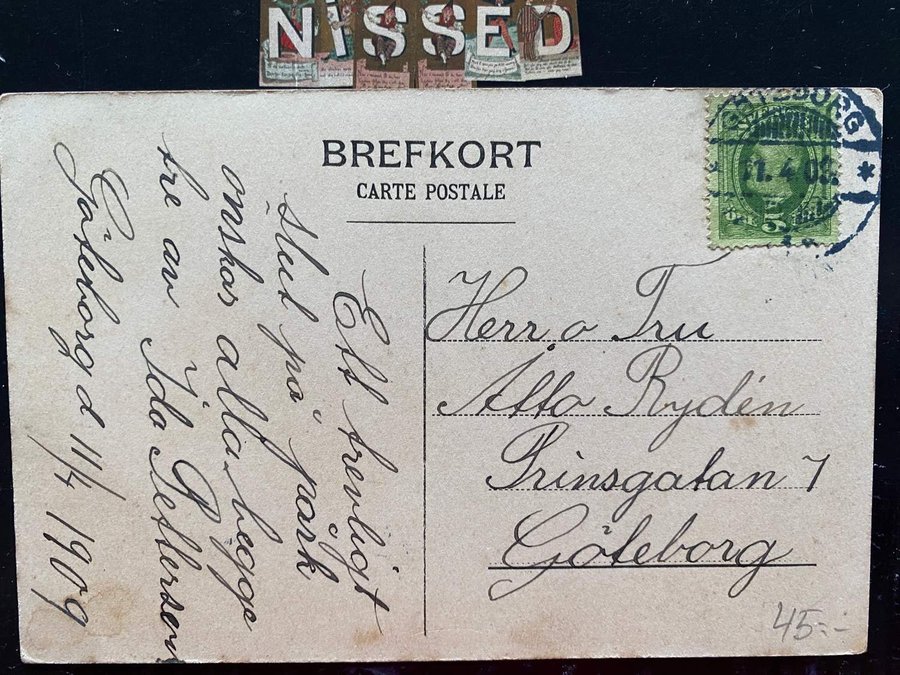 NISSED
BREFKORT
CARTE POSTALE
GÖTEBORG
11.4.09.
5
Ett trevligt
slut på påsk
önskas alla begge
tre av Ida Petterson
Göteborg d 11/4 1909
Herr o Fru
Otto Rydén
Prinsgatan 7
Göteborg
45:-